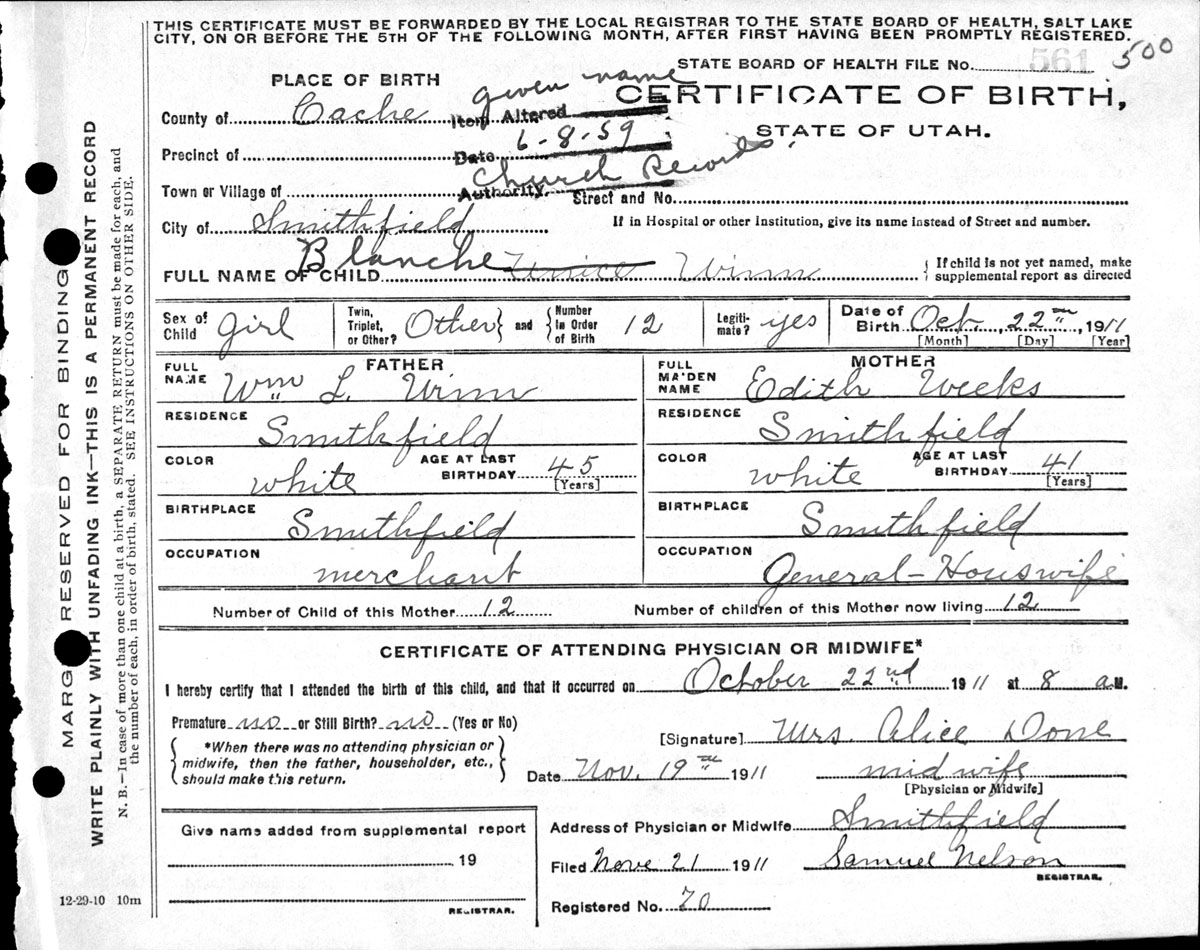 THIS CERTIFICATE MUST BE FORWARDED BY THE LOCAL REGISTRAR TO THE STATE BOARD OF HEALTH, SALT LAKE
CITY, ON OR BEFORE THE 5TH OF THE FOLLOWING MONTH, AFTER FIRST HAVING BEEN PROMPTLY REGISTERED.
STATE BOARD OF HEALTH FILE No. 561 500
PLACE OF BIRTH
CERTIFICATE OF BIRTH,
STATE OF UTAH.
County of Cache
Item Altered given name
Date 6-8-59
Authority Church Records
Precinct of
Town or Village of
Street and No.
City of Smithfield
If in Hospital or other Institution, give its name instead of Street and number.
FULL NAME OF CHILD Blanche Winn
{ If child is not yet named, make
supplemental report as directed
Sex of Child girl
Twin, Triplet, or Other? Other } and { Number in Order of Birth 12
Legiti-mate? yes
Date of Birth Oct. 22nd, 1911
[Month] [Day] [Year]
FATHER
FULL NAME Wm L. Winn
RESIDENCE Smithfield
COLOR white
AGE AT LAST BIRTHDAY 45
[Years]
BIRTHPLACE Smithfield
OCCUPATION merchant
MOTHER
FULL MAIDEN NAME Edith Weeks
RESIDENCE Smithfield
COLOR white
AGE AT LAST BIRTHDAY 41
[Years]
BIRTHPLACE Smithfield
OCCUPATION General-Houswife
Number of Child of this Mother 12 Number of children of this Mother now living 12
CERTIFICATE OF ATTENDING PHYSICIAN OR MIDWIFE*
I hereby certify that I attended the birth of this child, and that it occurred on October 22nd 1911 at 8 a.M.
Premature no or Still Birth? no (Yes or No)
{ *When there was no attending physician or
midwife, then the father, householder, etc.,
should make this return. }
[Signature] Mrs. Alice Done
Date Nov. 19th 1911 midwife
[Physician or Midwife]
Give name added from supplemental report
19
REGISTRAR.
Address of Physician or Midwife Smithfield
Filed Nove 21 1911 Samuel Nelson
REGISTRAR.
Registered No. 70
12-29-10 10m
MARGIN RESERVED FOR BINDING
WRITE PLAINLY WITH UNFADING INK—THIS IS A PERMANENT RECORD
N. B.—In case of more than one child at a birth, a SEPARATE RETURN must be made for each, and
the number of each, in order of birth, stated. SEE INSTRUCTIONS ON OTHER SIDE.